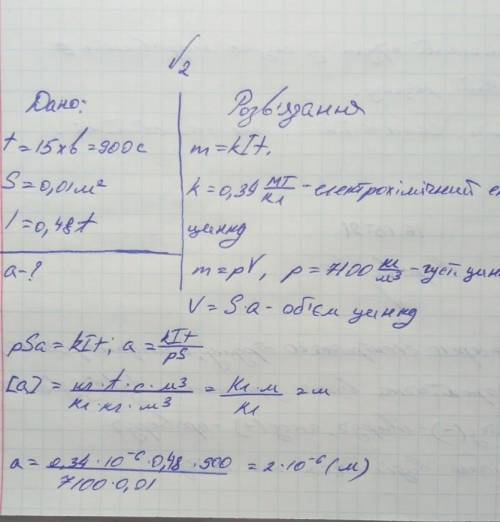 √2
Дано:
t = 15 хв = 900 с
S = 0,01 м²
I = 0,48 t
a - ?
Розв'язання
m = kIt,
k = 0,34 МГ/Кл - електрохімічний ек
цинку
m = ρV, ρ = 7100 кг/м³ - густ. цин
V = S·a - об'єм цинку
ρSa = kIt; a = kIt/ρS
[a] = кг·t·с·м³/Кл·кг·м³ = Кл·м/Кл = м
a = 0,34·10⁻⁶·0,48·900/7100·0,01 = 2·10⁻⁶ (м)